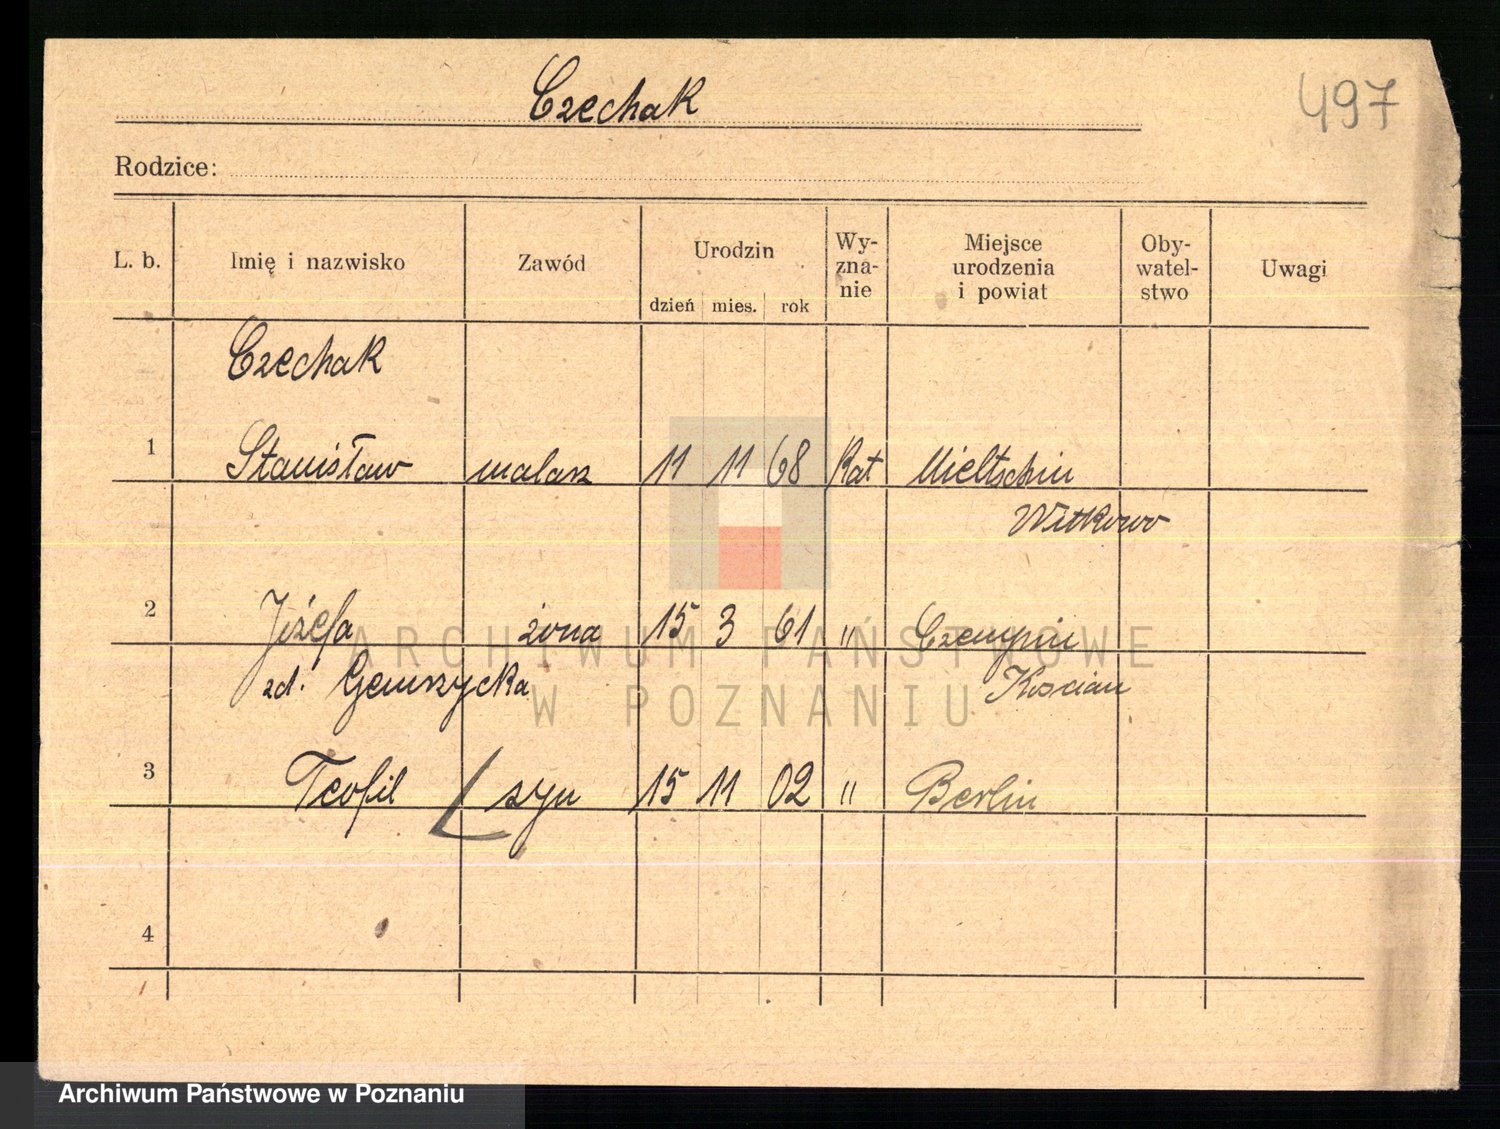 Czechak
497
Rodzice:
L. b. Imię i nazwisko Zawód Urodzin dzień mies. rok Wy-zna-nie Miejsce urodzenia i powiat Oby-watel-stwo Uwagi
Czechak
1 Stanisław malarz 11 11 68 Kat Mieltschin
Witkowo
2 Józefa żona 15 3 61 " Czempin
zd. Kościan
3 Teofil syn 15 11 02 " Berlin
4
ARCHIWUM PAŃSTWOWE
W POZNANIU
Archiwum Państwowe w Poznaniu